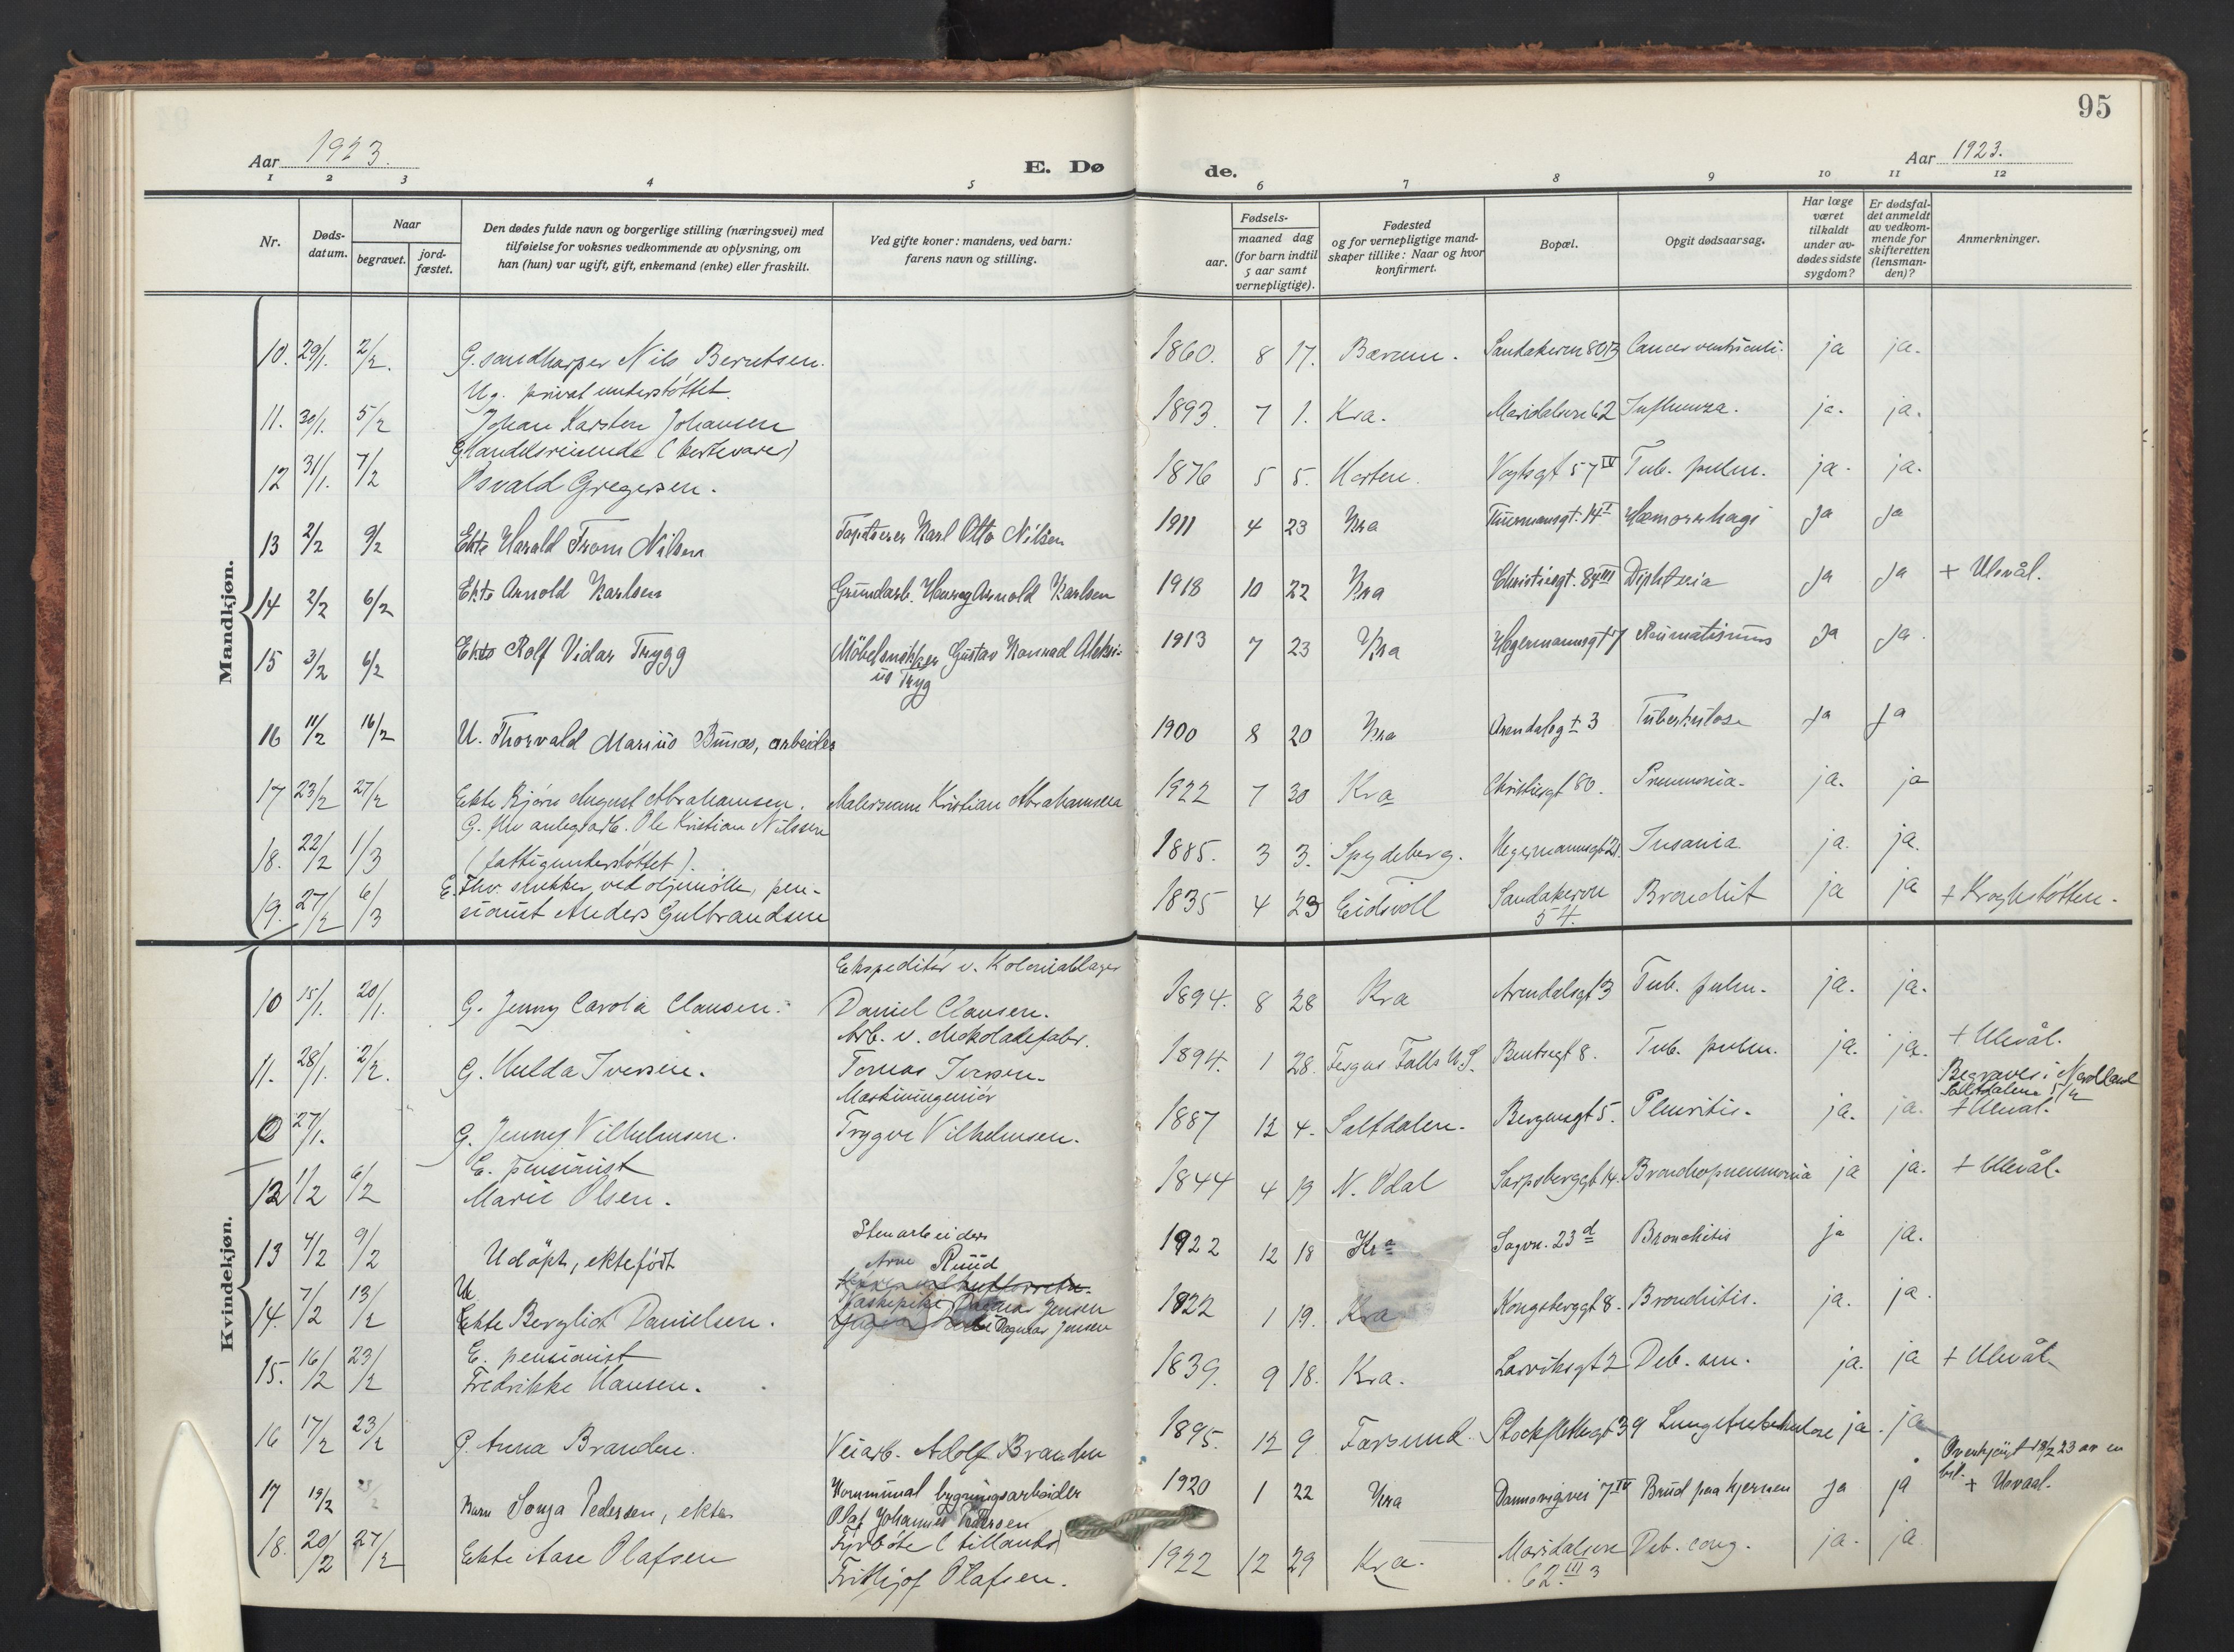 95
Aar 1923.
E. Dø
de.
Aar 1923.
1 2 3 4 5 6 7 8 9 10 11 12
Nr.
Døds-
datum.
Naar
begravet.
jord-
fæstet.
Den dødes fulde navn og borgerlige stilling (næringsvei) med
tilføielse for voksnes vedkommende av oplysning, om
han (hun) var ugift, gift, enkemand (enke) eller fraskilt.
Ved gifte koner: mandens, ved barn:
farens navn og stilling.
Fødsels-
aar.
maaned dag
(for barn indtil
5 aar samt
vernepligtige).
Fødested
og for vernepligtige mand-
skaper tillike: Naar og hvor
konfirmert.
Bopæl.
Opgit dødsaarsag.
Har læge
været
tilkaldt
under av-
dødes sidste
sygdom?
Er dødsfal-
det anmeldt
av vedkom-
mende for
skifteretten
(lensman-
den)?
Anmerkninger.
Mandkjøn.
10. 29/1. 2/2. G. sandharper Nils Berntsen. 1860. 8 17. Bærum. Sandakervn 80B Cancer ventriculi. ja ja.
Ug. privat understöttet.
11. 30/1. 5/2 Johan Karsten Johansen 1893. 7 1. Kra. Maridalsvn 62 Influenza. ja. ja.
G. Handelsreisende
12 31/1. 7/2 Osvald Gregersen. 1876 5 5. Horten. Vogtsgt 57 IV Tub. pulm. ja. ja.
13 2/2 9/2 Ekte Harald From Nilsen Tapetserer Karl Otto Nilsen 1911 4 23 Kra Thurmannsgt. 14 I Hæmorrhagi Ja Ja
14 2/2 6/2 Ekte Arnold Karlsen Grundarb. Arnold Karlsen 1918 10 22 Kra Christiesgt. 84 III Diphteria Ja Ja + Ulevål.
15 3/2 6/2 Ekte Rolf Vidar Trygg Möbelsnekker Gustav Konrad Aleksi-
us Tryg 1913 7 23 Kra Hegermannsgt 17 Reumatismus Ja Ja
16 11/2 16/2 U. Thorvald Marius Bunæs, arbeider 1900 8 20 Kra Arendalsgt 3 Tuberkulose Ja Ja
17 23/2 27/2 Ekte Bjørn August Abrahamsen. Malersvenn Kristian Abrahamsen 1922 7 30 Kra Christiesgt 80. Pneumonia. ja. ja
G. fhv anlegsarb. Ole Kristian Nilssen
18. 22/2 1/3 (fattigunderstöttet). 1885. 3 3. Spydeberg. Hegermannsgt 21. Insania ja. ja.
E. Fhv. ved oljemölle, pen-
19. 27/2 6/3 sionist Anders Gulbrandsen 1835 4 23 Eidsvoll Sandakervn
54. Bronchit ja ja + Krohgstötten.
Kvindekjøn.
Ekspeditör v. Koloniallager
10 15/1. 20/1. G. Jenny Carola Clausen. Daniel Clausen. 1894. 8 28 Kra Arendalsgt 3 Tub. pulm. ja. ja.
Arb. v. chokoladefabr.
11. 28/1. 2/2. G. Hulda Iversen. Tomas Iversen. 1894. 1 28. Fergus Falls U.S. Bentsegt 8. Tub. pulm. ja. ja. + Ulevål.
Maskiningeniör
Begraves i Nordland
Saltdalen 5/2
27/1. G. Jenny Vilhelmsen. Trygve Vilhelmsen. 1887 12 4. Saltdalen. Bergensgt 5. Pleuritis. ja. ja. + Ulevål.
E. pensionist
12 1/2 6/2 Marie Olsen. 1844 4 19 N. Odal Sarpsborggt 14. Bronchopneumonia ja ja. + Ulevål.
Stenarbeider
13 4/2 9/2 Udöpt, ektefödt Arne Ruud 1922 12 18 Kra Sagvn. 23 d Bronchitis ja ja.
U
14. 7/2 13/2 Ekte Bergliot Danielsen. Vaskepike Dagmar Jensen
Dagmar Jensen 1922 1 19. Kra Kongsberggt 8. Bronchitis. ja. ja.
E. pensionist
15. 16/2 23/2 Fredrikke Hansen. 1839. 9 18. Kra. Larviksgt 2 Deb. sen. ja. ja + Ulevål.
16 17/2 23/2 G. Anna Branden. Veiarb. Adolf Branden 1895. 12 9 Farsund. Stockfletbsgt 39 Lungetuberkulose ja. ja
Overkjørt 18/2 23 av en
bil. + Ulevaal.
17 19/2 Barn Sonja Pedersen, ekte Kommunal bygningsarbeider
Olaf Johannes Pedersen 1920 1 22 Kra Dannevigvei 7 IV Brud paa hjernen Ja ja
18. 20/2 27/2 Ekte Aase Olafsen Fyrböter (tillands)
Frithjof Olafsen. 1922 12 29 Kra. Maridalsvn
62. III Deb. cong. ja. ja